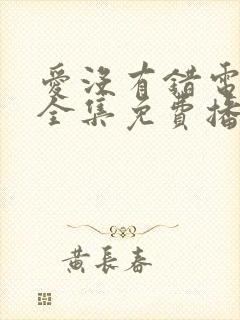 愛沒有錯電
全集免費播
黃長春